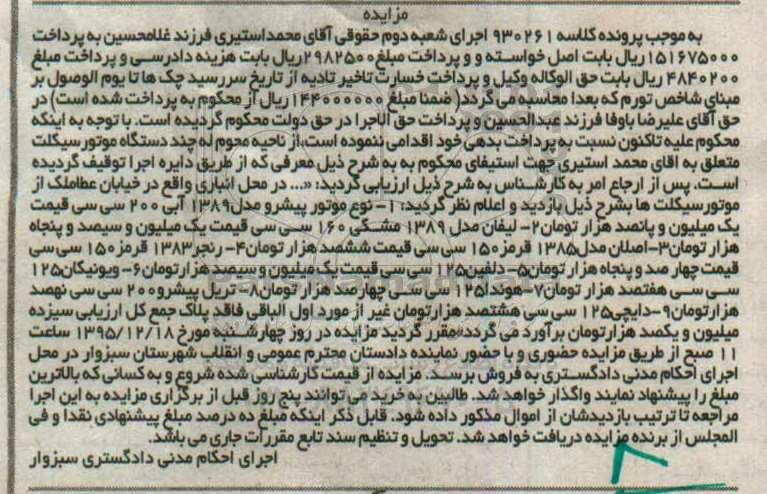 مزایده
به موجب پرونده کلاسه ۹۳۰۲۶۱ اجرای شعبه دوم حقوقی آقای محمداستیری فرزند غلامحسین به پرداخت
۱۵۱۶۷۵۰۰۰ریال بابت اصل خواسته و و پرداخت مبلغ۲۹۸۲۵۰۰ریال بابت هزینه دادرسی و پرداخت مبلغ
۴۸۴۰۲۰۰ ریال بابت حق الوکاله وکیل و پرداخت خسارت تاخیر تادیه از تاریخ سررسید چک ها تا یوم الوصول بر
مبنای شاخص تورم که بعدا محاسبه می گردد( ضمنا مبلغ ۱۴۴۰۰۰۰۰۰ریال از محکوم به پرداخت شده است) در
حق آقای علیرضا باوفا فرزند عبدالحسین و پرداخت حق الاجرا در حق دولت محکوم گردیده است. با توجه به اینکه
محکوم علیه تاکنون نسبت به پرداخت بدهی خود اقدامی ننموده است،از ناحیه محوم له چند دستگاه موتورسیکلت
متعلق به اقای محمد استیری جهت استیفای محکوم به به شرح ذیل معرفی که از طریق دایره اجرا توقیف گردیده
است. پس از ارجاع امر به کارشناس به شرح ذیل ارزیابی گردید: «... در محل انباری واقع در خیابان عطاملک از
موتورسیکلت ها بشرح ذیل بازدید و اعلام نظر گردید: ۱- نوع موتور پیشرو مدل۱۳۸۹ آبی ۲۰۰ سی سی قیمت
یک میلیون و پانصد هزار تومان۲- لیفان مدل ۱۳۸۹ مشکی ۱۶۰ سی سی قیمت یک میلیون و سیصد و پنجاه
هزار تومان۳-اصلان مدل۱۳۸۵ قرمز۱۵۰ سی سی قیمت ششصد هزار تومان۴- رنجر۱۳۸۳ قرمز۱۵۰ سی سی
قیمت چهار صد و پنجاه هزار تومان۵- دلفین۱۲۵ سی سی قیمت یک میلیون و سیصد هزارتومان۶- ویونیکان۱۲۵
سی سی هفتصد هزار تومان۷-هوندا۱۲۵ سی سی چهارصد هزار تومان۸- تریل پیشرو۲۰۰ سی سی نهصد
هزارتومان۹-دایچی۱۲۵ سی سی هشتصد هزارتومان غیر از مورد اول الباقی فاقد پلاک جمع کل ارزیابی سیزده
میلیون و یکصد هزارتومان برآورد می گردد»مقرر گردید مزایده در روز چهارشنبه مورخ ۱۳۹۵/۱۲/۱۸ ساعت
۱۱ صبح از طریق مزایده حضوری و با حضور نماینده دادستان محترم عمومی و انقلاب شهرستان سبزوار در محل
اجرای احکام مدنی دادگستری به فروش برسد. مزایده از قیمت کارشناسی شده شروع و به کسانی که بالاترین
مبلغ را پیشنهاد نمایند واگذار خواهد شد. طالبین به خرید می توانند پنج روز قبل از برگزاری مزایده به این اجرا
مراجعه تا ترتیب بازدیدشان از اموال مذکور داده شود. قابل ذکر اینکه مبلغ ده درصد مبلغ پیشنهادی نقدا و فی
المجلس از برنده مزایده دریافت خواهد شد. تحویل و تنظیم سند تابع مقررات جاری می باشد.
اجرای احکام مدنی دادگستری سبزوار